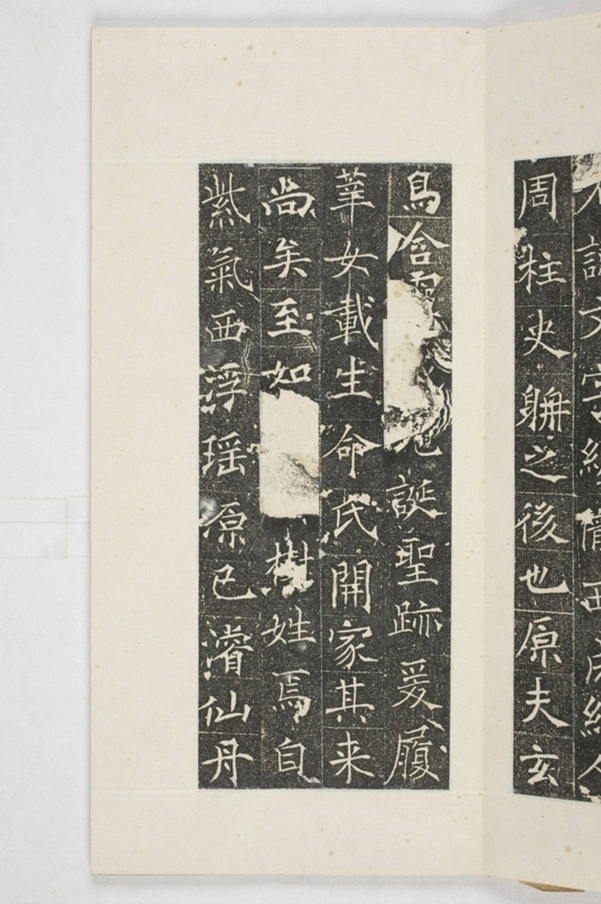 諱文隴西成紀人
周柱史聃之後也原夫玄
鳥含誕聖跡爰履
莘女載生命氏開家其来
尚矣至如樹姓焉自
紫氣西浮瑶原已濬仙丹